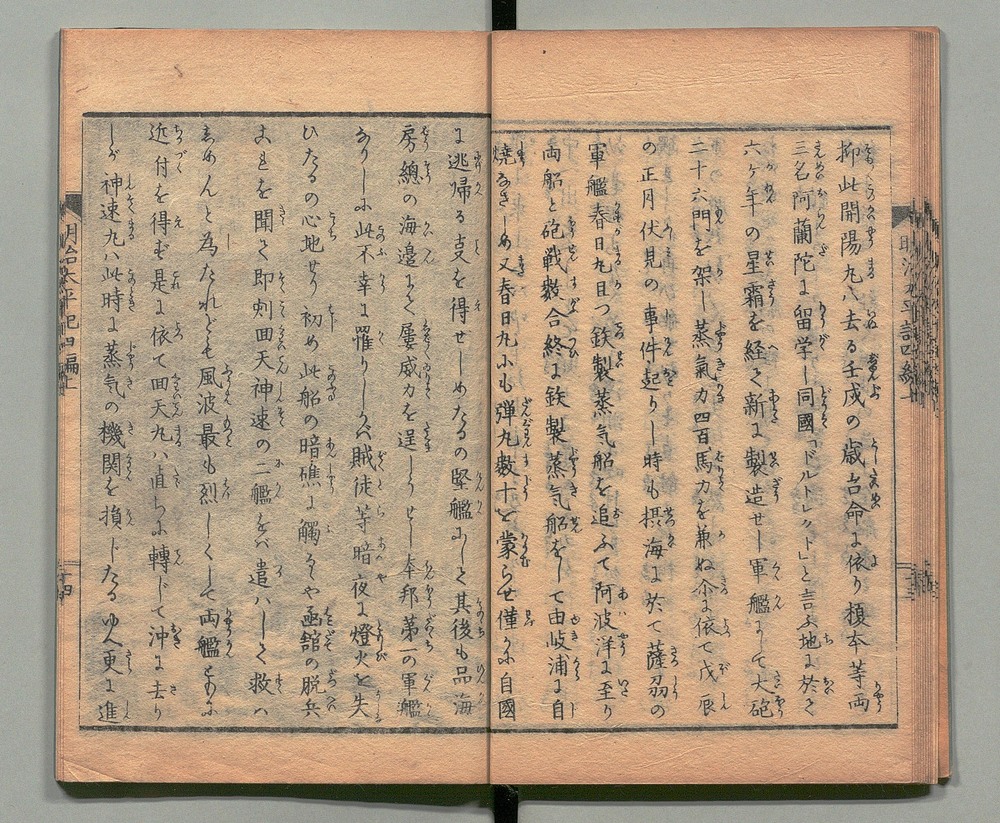 抑此開陽丸ハ去る壬戌の歳台命に依り榎本等両
三名阿蘭陀に留学し同國「ドルトレクト」と言ふ地に於て
六ケ年の星霜を経て新に製造せし軍艦にして大砲
二十六門を架し蒸氣力四百馬力を兼ぬ尒に依て戊辰
の正月伏見の事件起りし時も摂海に於て薩刕の
軍艦春日丸且つ鉄製蒸気船を追ふて阿波洋に至り
両船と砲戦数合終に鉄製蒸気船をして由岐浦に自
焼なさしめ又春日丸にも弾丸数十を蒙らせ僅かに自國
に逃帰る支を得せしめたるの堅艦にして其後も品海
房總の海邊にて屢威力を逞しうせし本邦第一の軍艦
なりしに此不幸に罹りしハ賊徒等暗夜に燈火を失
ひたるの心地せり初め此船の暗礁に觸るゝや函舘の脱兵
之を聞て即刻回天神速の二艦をバ遣ハして救ハ
しめんと為たれども風波最も烈しくして両艦ともに
近付を得ず是に依て回天丸ハ直ちに轉じて沖に去り
しが神速丸ハ此時に蒸気の機関を損じたるゆへ更に進
明治太平記四編上
十四